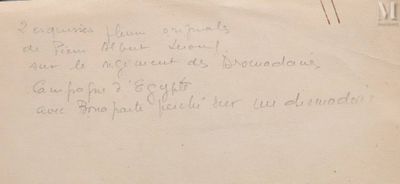 2 esquisses plume originales
de Pierre Albert Leroux
sur le régiment des Dromadaires
Campagne d'Egypte
avec Bonaparte perché sur un dromadaire
M